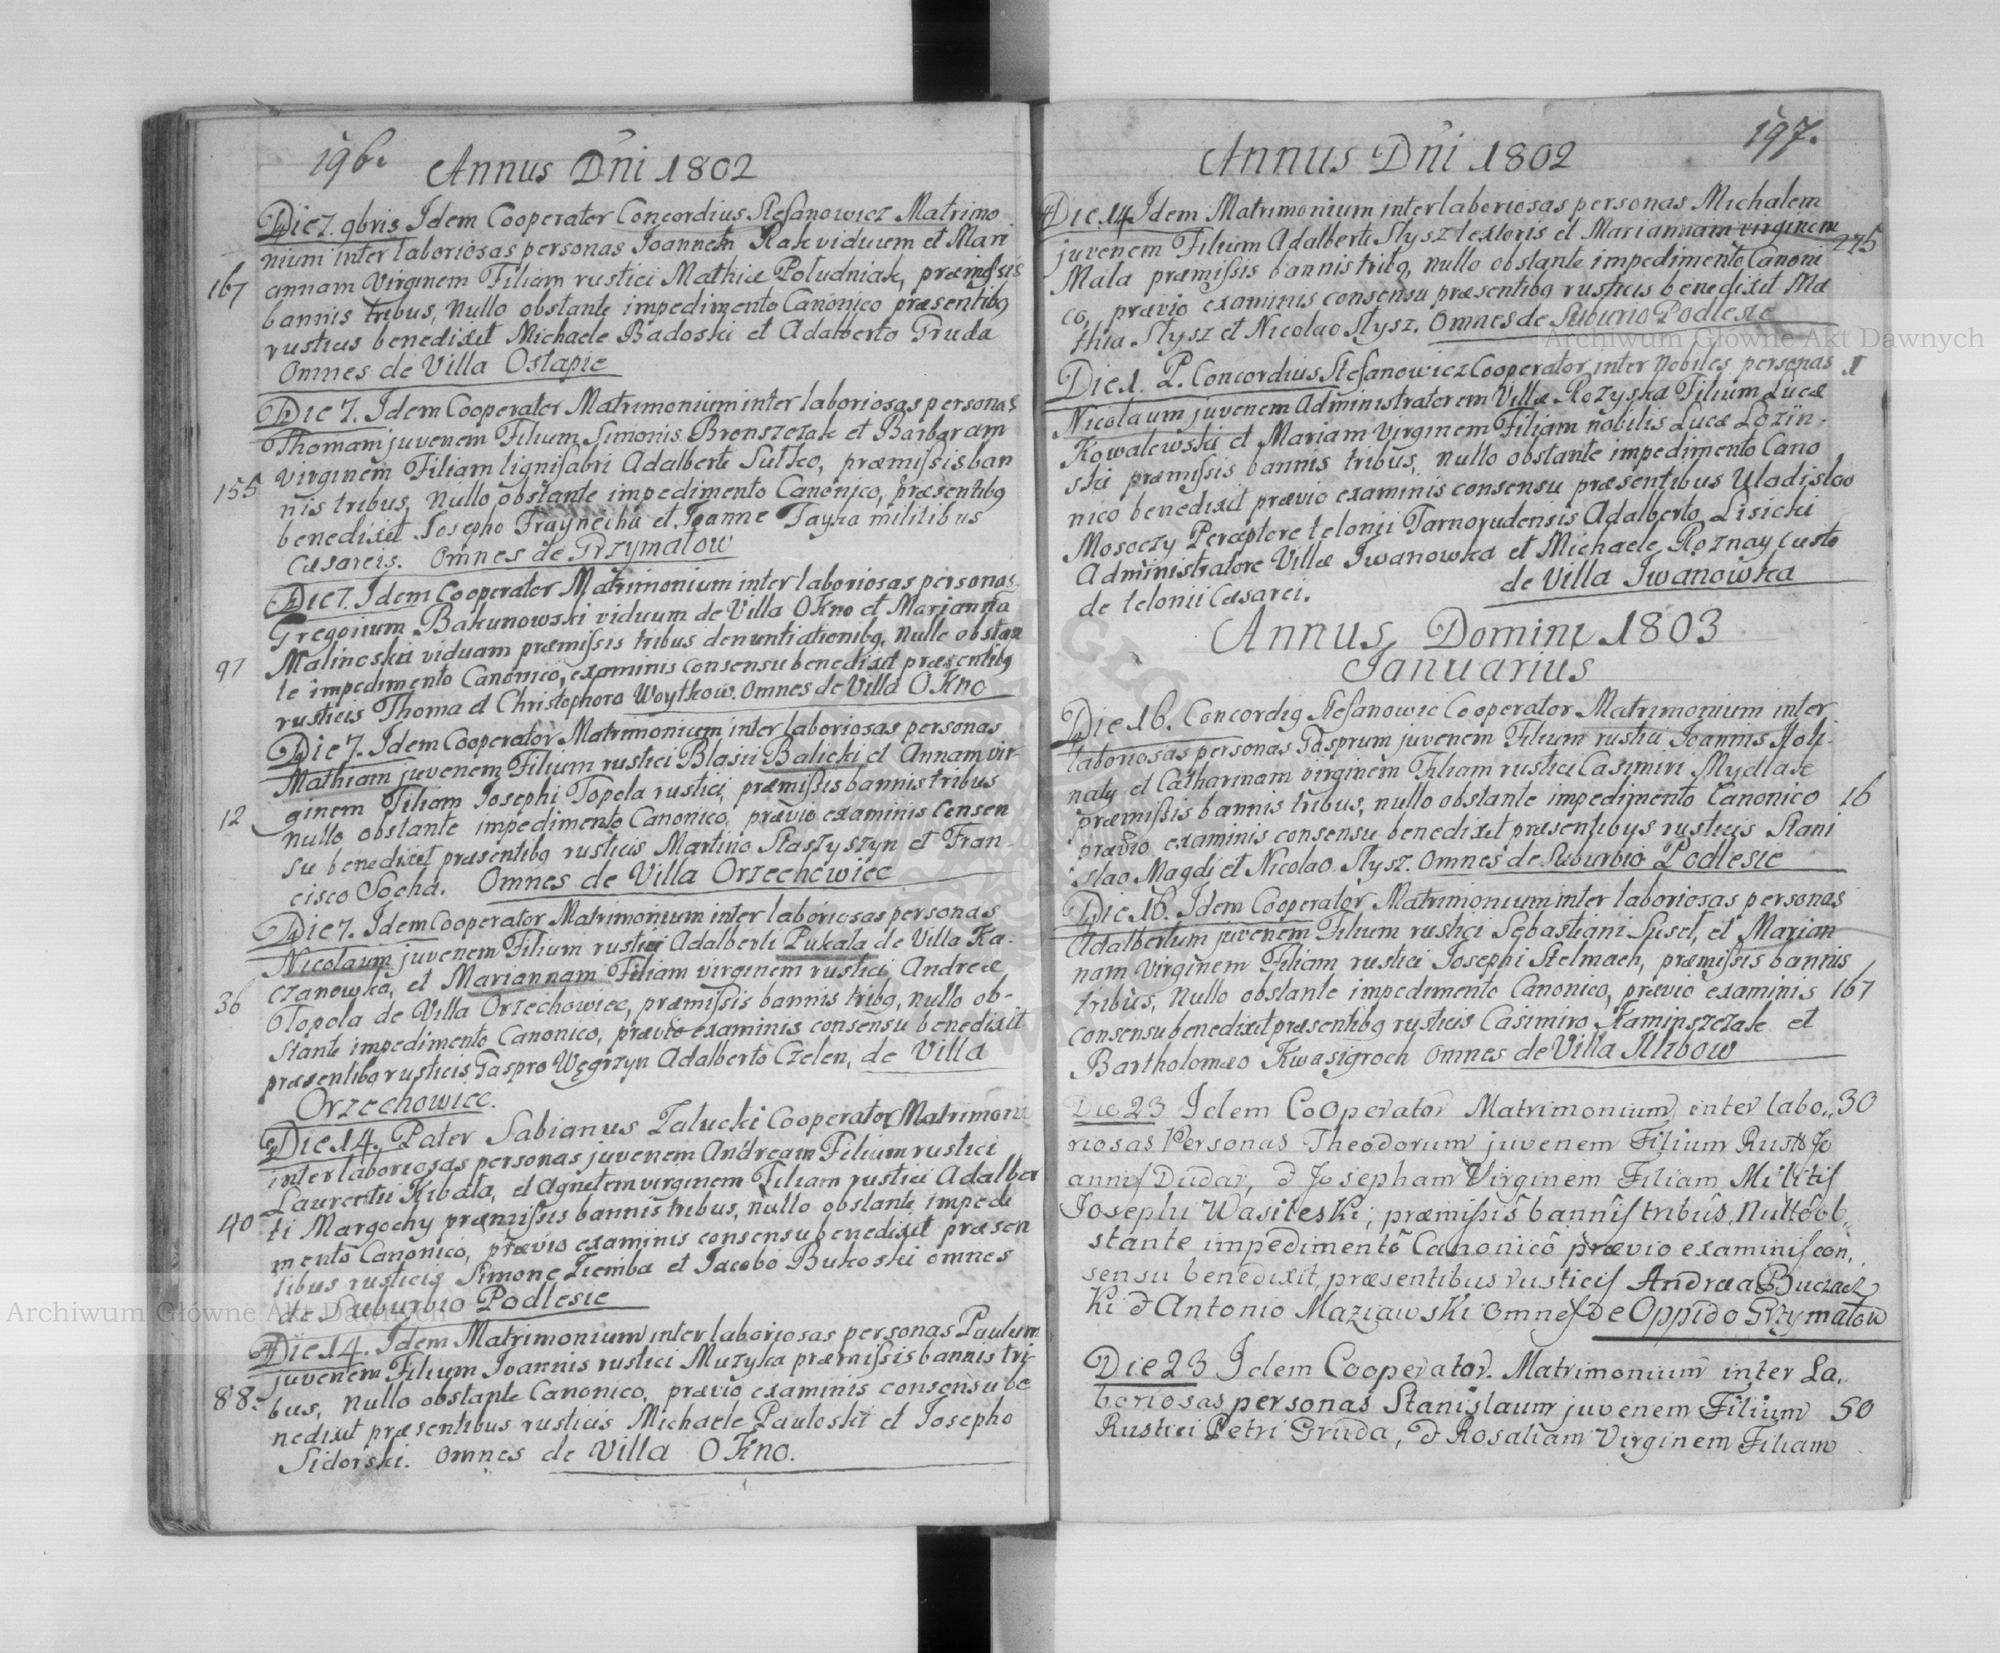 196.
Annus Dni 1802
Die 7. 9bris Idem Cooperator Concordius Stefanowicz Matrimo
nium inter laboriosas personas Joannem Rak viduum et Mari
167
annam Virginem Filiam rustici Mathiæ Południak, præmissis
bannis tribus, Nullo obstante impedimento Canonico præsentibq
rusticis benedixit Michaele Badoski et Adalberto Gruda
Omnes de Villa Ostapie
Die 7. Idem Cooperator Matrimonium inter laboriosas personas
Thomam juvenem Filium Simonis Bronszczak et Barbaram
155
Virginem Filiam lignifabri Adalberti Sutko, præmissis ban
nis tribus, Nullo obstante impedimento Canonico, præsentibq
benedixit Josepho Fraynecha et Joanne Tayra militibus
Cæsareis. Omnes de Grzymałow
Die 7. Idem Cooperator Matrimonium inter laboriosas personas
Gregorium Bakunowski viduum de Villa OKno et Marjanna
97
Malinoskū viduam præmissis tribus denuntiationibq, Nullo obstan
te impedimento Canonico, examinis consensu benedixit præsentibq
rusticis Thoma et Christophoro Woytkow. Omnes de Villa OKno
Die 7. Idem Cooperator Matrimonium inter laboriosas personas
Mathiam juvenem Filium rustici Blasii Balicki et Annam vir-
12
ginem Filiam Josephi Topola rustici, præmissis bannis tribus
nullo obstante impedimento Canonico, prævio examinis Consen
su benedixit præsentibq rusticis Martino Staszyszyn et Fran
cisco Socha. Omnes de Villa Orzechowiec
Die 7. Idem Cooperator Matrimonium inter laboriosas personas
Nicolaum juvenem Filium rustici Adalberti Pukala de Villa Ka-
czanowka, et Mariannam Filiam virginem rustici Andreæ
36
Topola de Villa Orzechowiec, præmissis bannis tribq, nullo ob-
stante impedimento Canonico, prævio examinis consensu benedixit
præsentibq rusticis Gaspro Węgrzyn Adalberto Czelen, de Villa
Orzechowiec.
Die 14. Pater Sabianus Załucki Cooperator Matrimoni
inter laboriosas personas juvenem Andream Filium rustici
Laurentii Kibała, et Agnetem virginem Filiam rustici Adalber
40
ti Margochy præmissis bannis tribus, nullo obstante impedi
mento Canonico, prævio examinis consensu benedixit præsen
tibus rusticis Simone Ziemba et Jacobo Bukoski omnes
de Suburbio Podlesie
Die 14. Idem Matrimonium inter laboriosas personas Paulum
juvenem Filium Joannis rustici Muzyka præmissis bannis tri-
88.
bus, nullo obstante Canonico, prævio examinis consensu be
nedixit præsentibus rusticis Michaele Pauloski et Josepho
Sidorski. Omnes de Villa OKno.
197.
Annus Dni 1802
Die 14 Idem Matrimonium inter laboriosas personas Michalem
juvenem Filium Adalberti Stysz textoris et Mariannam virginem
275
Mała præmissis bannis tribq, nullo obstante impedimento Canoni
co, prævio examinis consensu præsentibq rusticis benedixit Ma
thia Stysz et Nicolao Stysz. Omnes de Suburio Podlesie
Die 1. P. Concordius Stefanowicz Cooperator inter Nobiles personas
1
Nicolaum juvenem Administratorem Villæ Rozyska Filium Lucæ
Kowalewski et Mariam Virginem Filiam nobilis Lucæ Lozin-
ski præmissis bannis tribus, nullo obstante impedimento Cano
nico benedixit prævio examinis consensu præsentibus Uladislao
Mosoczy Perceptore telonii Tarnorudensis Adalberto Lisicki
Administratore Villæ Jwanowka et Michaele Roznay Custo
de telonii Cæsarei. de Villa Jwanowka
Annus Domini 1803
Januarius
Die 16. Concordiq Stefanowic Cooperator Matrimonium inter
laboriosas personas Gasprum juvenem Filium rustici Joannis Holi-
naty et Catharinam virginem Filiam rustici Casimiri Mydlak
præmissis bannis tribus, nullo obstante impedimento Canonico
16
prævio examinis consensu benedixit præsentibus rusticis Stani
slao Magdi et Nicolao Stysz. Omnes de Suburbio Podlesie
Die 16. Idem Cooperator Matrimonium inter laboriosas personas
Adalbertum juvenem Filium rustici Sebastiani Susel, et Marian
nam Virginem Filiam rustici Josephi Stelmach, præmissis bannis
tribus, Nullo obstante impedimento Canonico, prævio examinis
167
consensu benedixit præsentibq rusticis Casimiro Kaminszczak et
Bartholomæo Kwasigroch Omnes de Villa
Die 23 Idem Cooperator Matrimonium inter labo,,
30
riosas Personas Theodorum juvenem Filium Rusts Jo
annis Dudar, & Josepham Virginem Filiam Militis
Josephi Wasileski; præmissis bannis tribus, Nullo ob,,
stante impedimento Canonico prævio examinis con,,
sensu benedixit, præsentibus rusticis Andræa Buczac
Ki & Antonio Maziawski Omnes de Oppido Grzymałow
Die 23 Idem Cooperator Matrimonium inter La,,
boriosas personas Stanislaum juvenem Filium
50
Rustici Petri Gruda, & Rosaliam Virginem Filiam
Archiwum Główne Akt Dawnych
Archiwum Główne Akt Dawnych